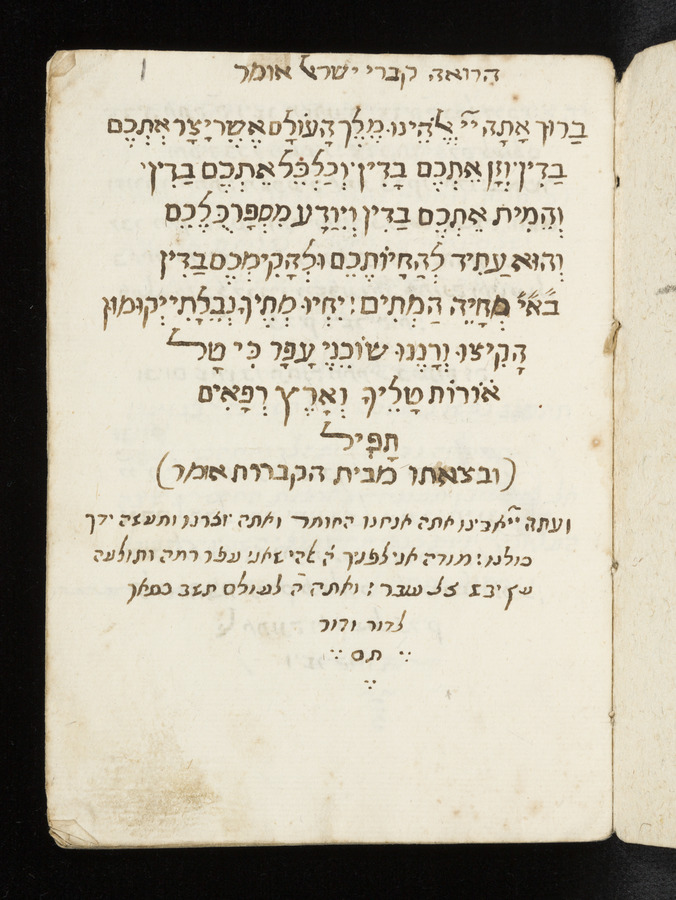 הרואה קברי ישראל אומר
בָרוּךְ אַתָּה יְיָ אֱלֹהֵינוּ מֶלֶךְ הָעוֹלָם אֲשֶר יָצַר אֶתְכֶם
בַדִין וְזָן אֶתְכֶם בָדִין וְכִלְכֵּל אֶתְכֶם בַדִין
וְהֵמִית אֶתְכֶם בַדִין וְיוֹדֵעַ מִסְפַר כֻּלְכֶם
וְהוּא עַתִיד לְהַחֲיוֹתְכֶם וּלְהָקִימְכֶם בַדִין
בא״י מְחַיֵה הַמְתִים׃ יִחְיוּ מֵתֶיךָ נְבֵלָתִי יְקוּמוּן
הָקִיצוּ וְרָנְנוּ שוֹכְנֵי עָפָר כִּי טַל
אוֹרוֹת טַלֶיךָ וָאָרֶץ רְפָאִים
תַפִיל
(ובצאתו מבית הקברות אומר)
ועתה יי אבינו אתה אנחנו החומר ואתה יוצרנו ומעשה ידך
כולנו׃ מודה אני לפניך ה׳ אלהי שאני עפר רמה ותולעה
עץ יבש צל עובר׃ ואתה ה׳ לעולם תשב כסאך
לדור ודור
תם